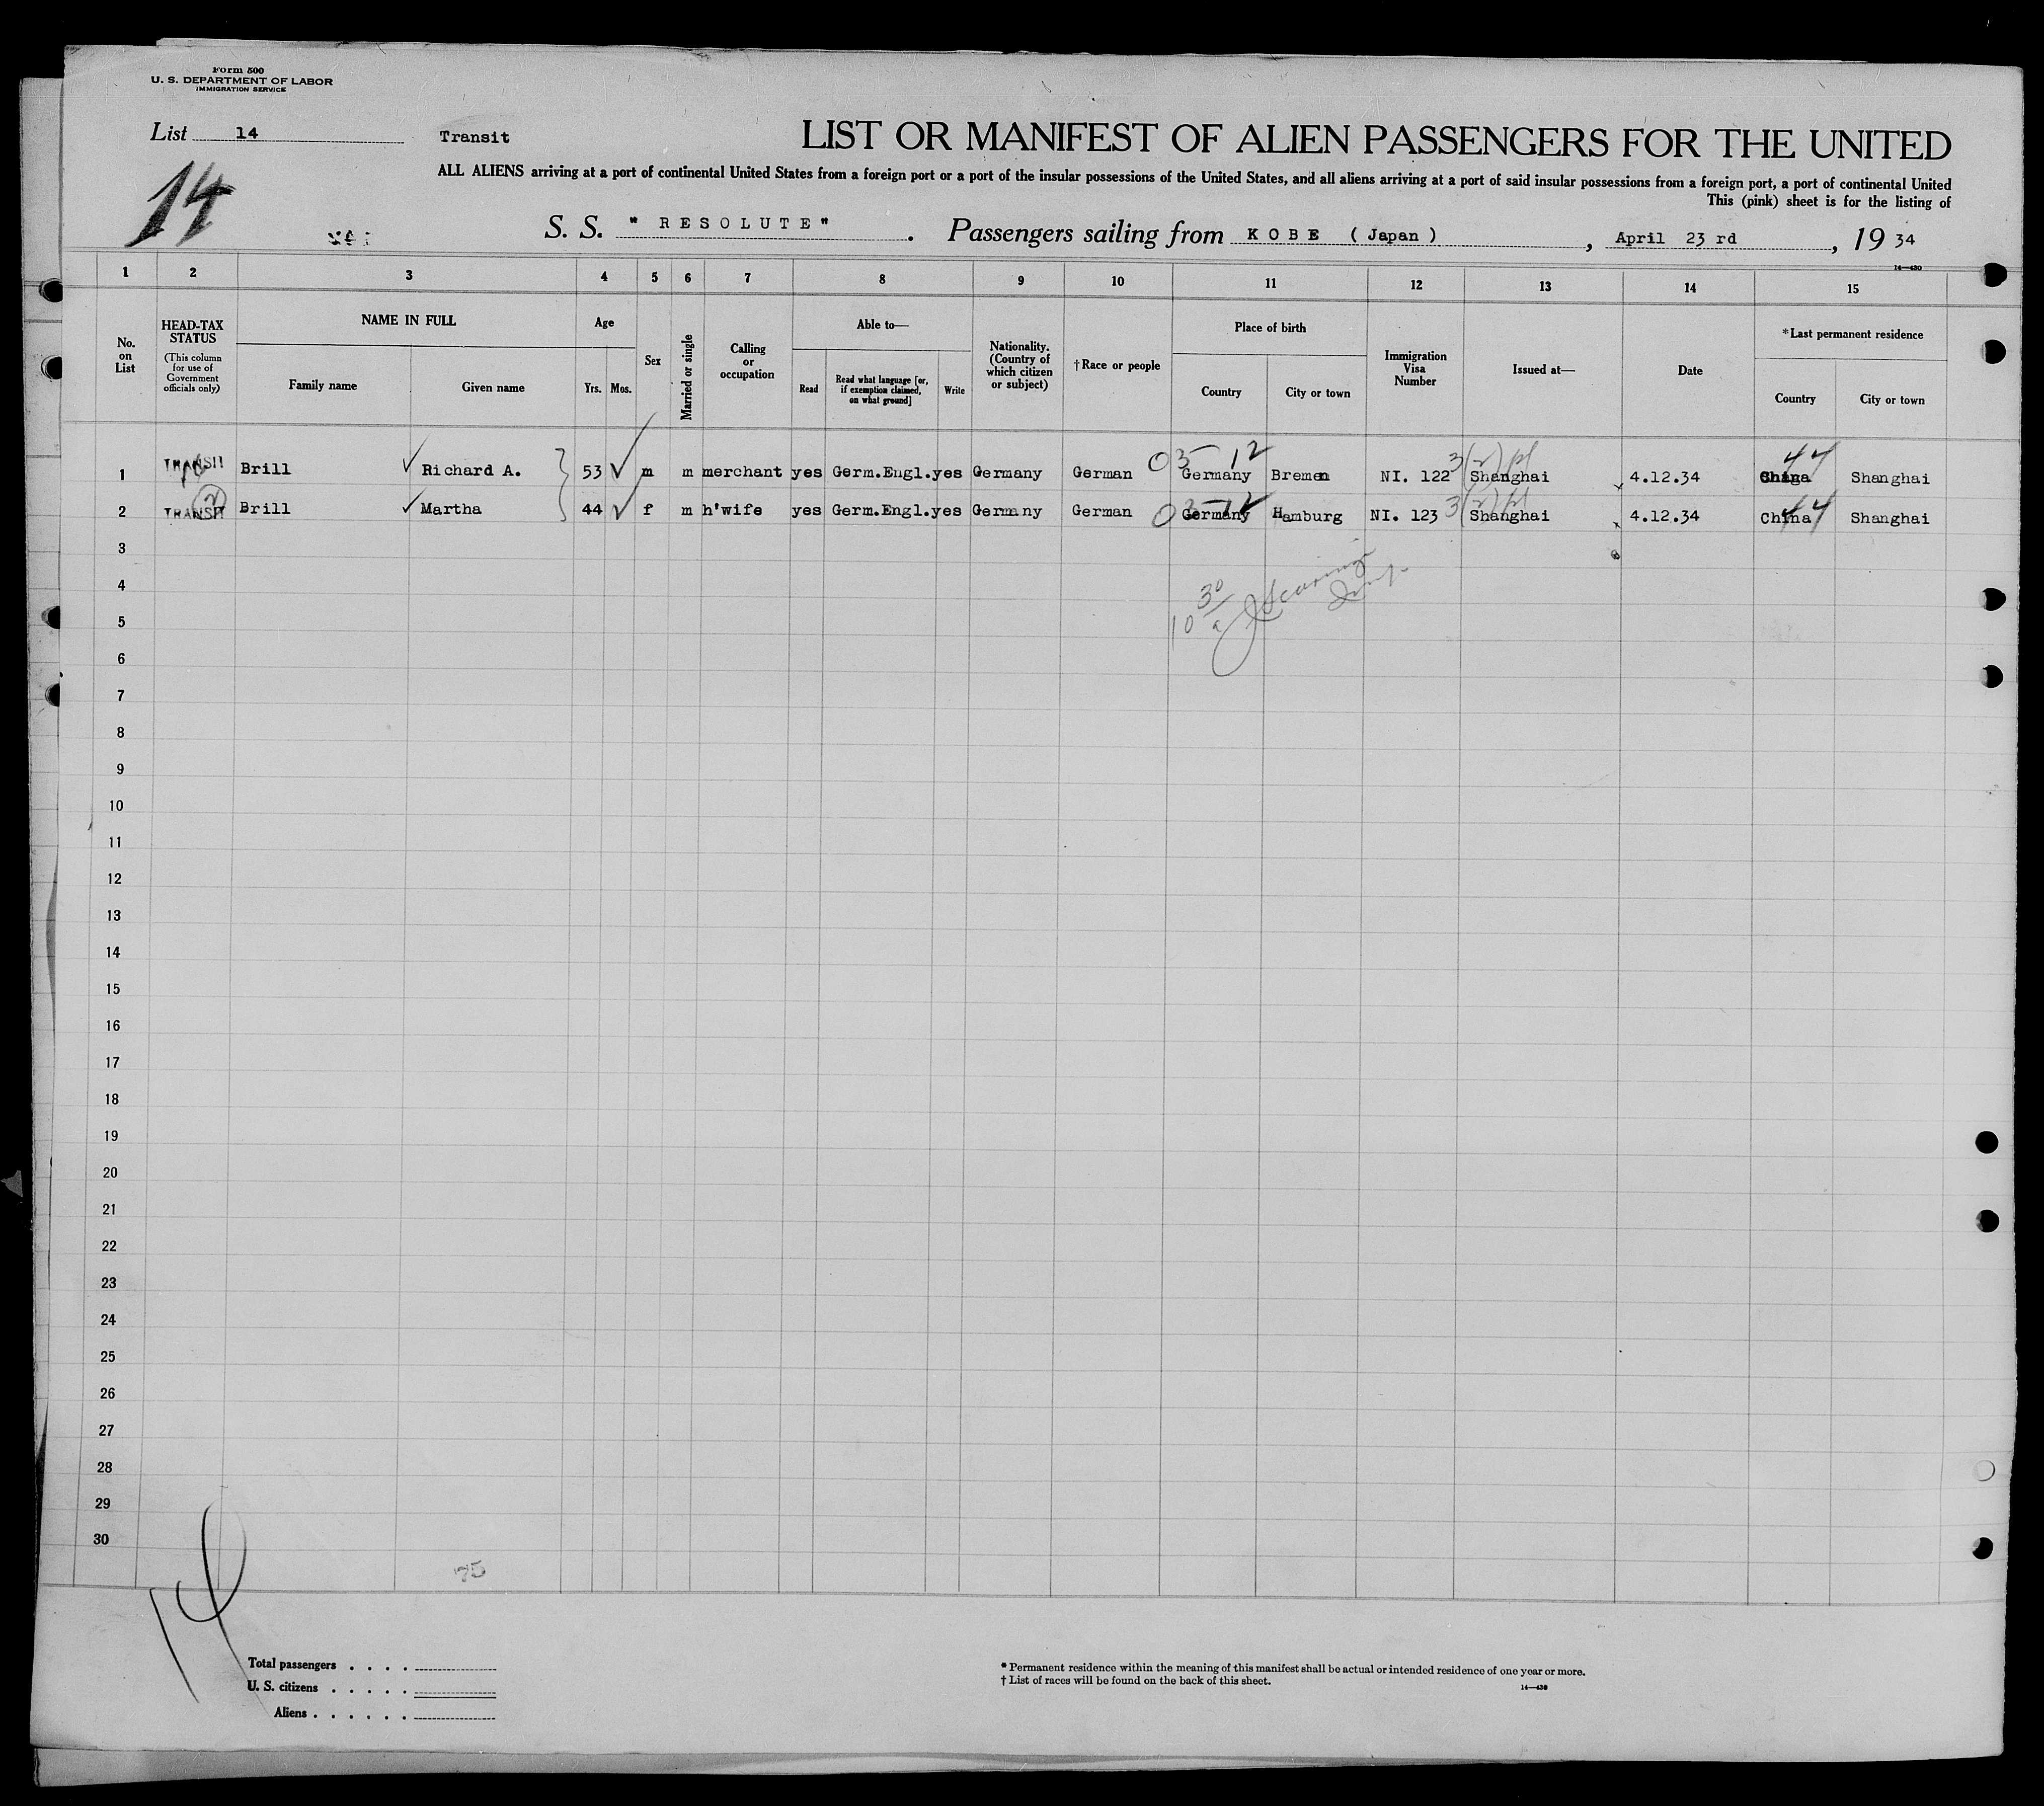 Form 500
U. S. DEPARTMENT OF LABOR
IMMIGRATION SERVICE
List 14 Transit LIST OR MANIFEST OF ALIEN PASSENGERS FOR THE UNITED
14
ALL ALIENS arriving at a port of continental United States from a foreign port or a port of the insular possessions of the United States, and all aliens arriving at a port of said insular possessions from a foreign port, a port of continental United
This (pink) sheet is for the listing of
S. S. "RESOLUTE". Passengers sailing from KOBE (Japan), April 23 rd, 19 34
14—430
1 2 3 4 5 6 7 8 9 10 11 12 13 14 15
No. on List
HEAD-TAX STATUS (This column for use of Government officials only)
NAME IN FULL
Family name Given name
Age
Yrs. Mos.
Sex
Married or single
Calling or occupation
Able to—
Read Read what language [or, if exemption claimed, on what ground] Write
Nationality. (Country of which citizen or subject)
†Race or people
Place of birth
Country City or town
Immigration Visa Number
Issued at—
Date
*Last permanent residence
Country City or town
03-12 3(2)pl 44
1 TRANSIT Brill Richard A. 53 m m merchant yes Germ.Engl. yes Germany German Germany Bremen NI. 122 Shanghai 4.12.34 China Shanghai
03-12 3(2)pl 44
2 TRANSIT 2 Brill Martha 44 f m h'wife yes Germ.Engl. yes Germany German Germany Hamburg NI. 123 Shanghai 4.12.34 China Shanghai
3
4
10 30 a
5
6
7
8
9
10
11
12
13
14
15
16
17
18
19
20
21
22
23
24
25
26
27
28
29
30
75
14
Total passengers . . . .
U. S. citizens . . . . .
Aliens . . . . . .
* Permanent residence within the meaning of this manifest shall be actual or intended residence of one year or more.
† List of races will be found on the back of this sheet.
14—430